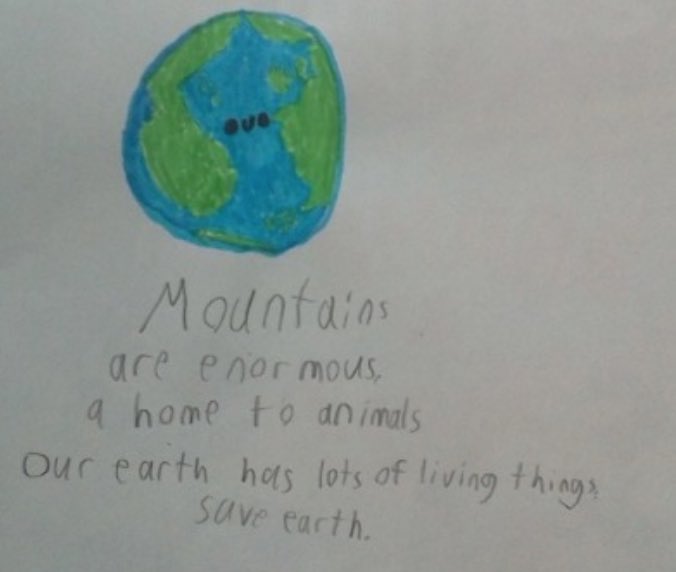 Mountains
are enormous,
a home to animals
Our earth has lots of living things.
save earth.